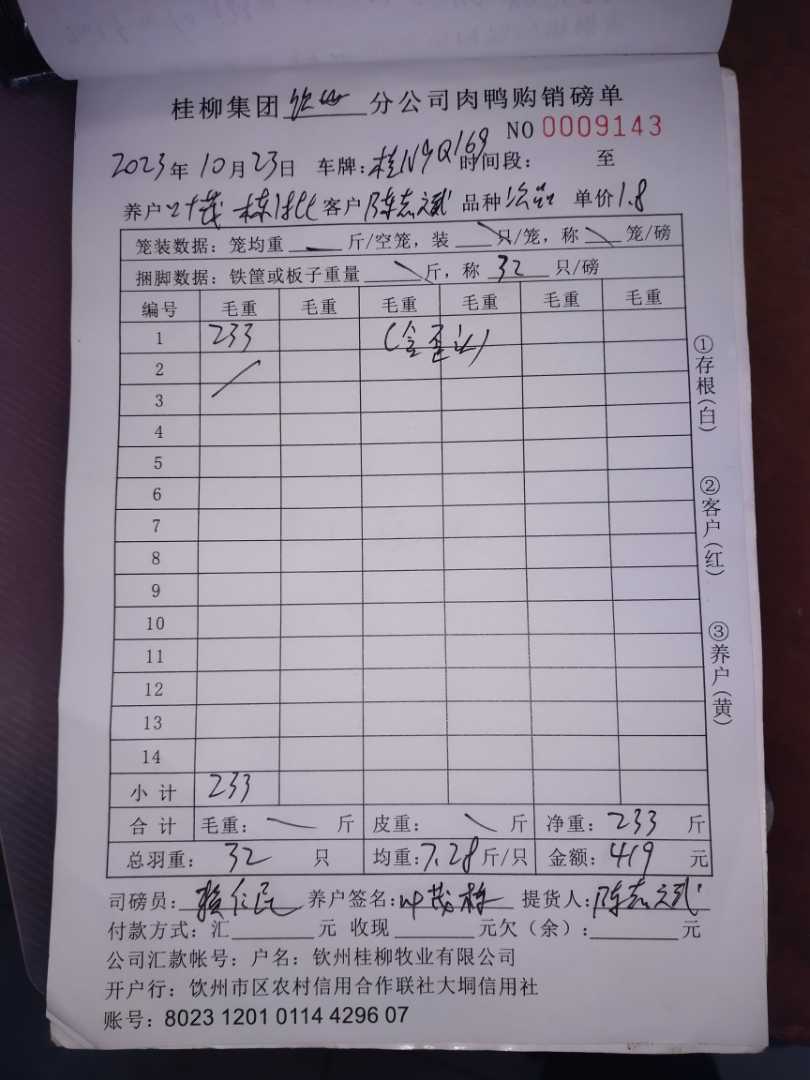 桂柳集团 钦州 分公司肉鸭购销磅单
NO 0009143
2023年10月23日 车牌:桂N9Q169 时间段: 至
养户 叶茂栋 客户 陈志斌 品种 单价1.8
笼装数据: 笼均重 斤/空笼, 装 只/笼, 称 笼/磅
捆脚数据: 铁筐或板子重量 斤, 称 32 只/磅
编号 毛重 毛重 毛重 毛重 毛重 毛重
1 233
2
3
4
5
6
7
8
9
10
11
12
13
14
小计 233
合计 毛重: 斤 皮重: 斤 净重: 233 斤
总羽重: 32 只 均重: 7.28 斤/只 金额: 419 元
司磅员: 养户签名: 叶茂栋 提货人: 陈志斌
付款方式: 汇 元 收现 元欠（余）: 元
公司汇款帐号: 户名: 钦州桂柳牧业有限公司
开户行: 饮州市区农村信用合作联社大垌信用社
账号: 8023 1201 0114 4296 07
①存根(白)
②客户(红)
③养户(黄)